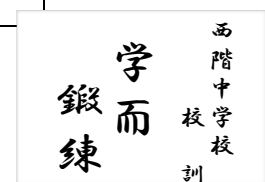 西階中学校
校訓
学而
鍛練